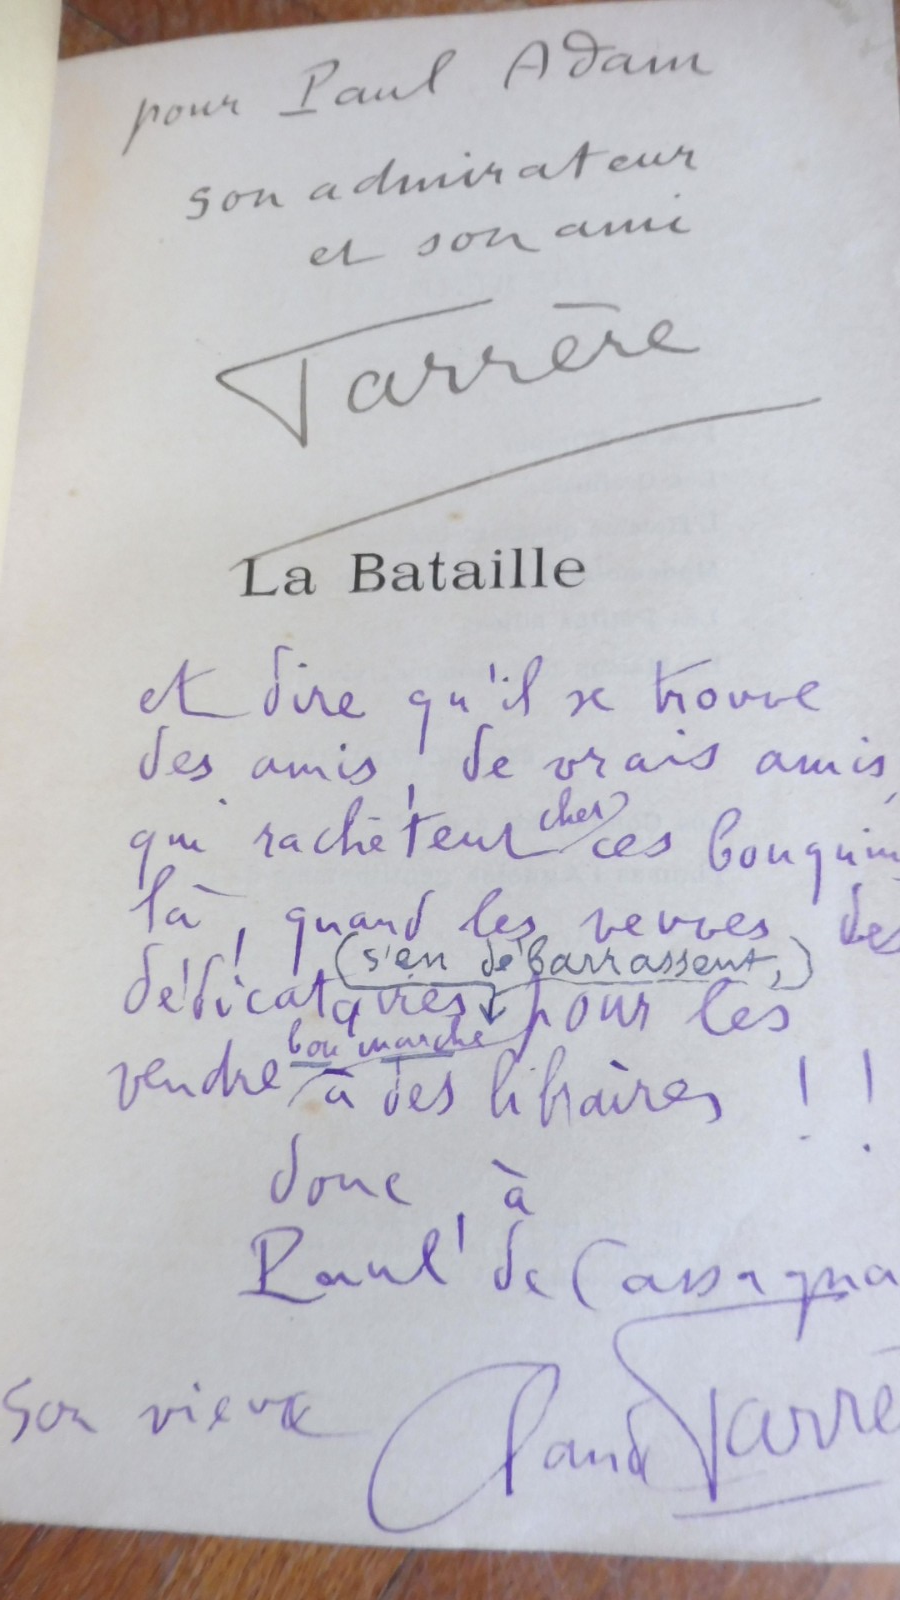 pour Paul Adam
son admirateur
et son ami
Farrère
La Bataille
et dire qu'il se trouve
des amis, de vrais amis,
qui rachètent cher ces bouquins
là, quand les veuves des
(s'en débarrassent,)
dédicataires pour les
bon marché
vendre à des libraires !!
donc à
Paul de Cassagna
son vieux Claude Farrè